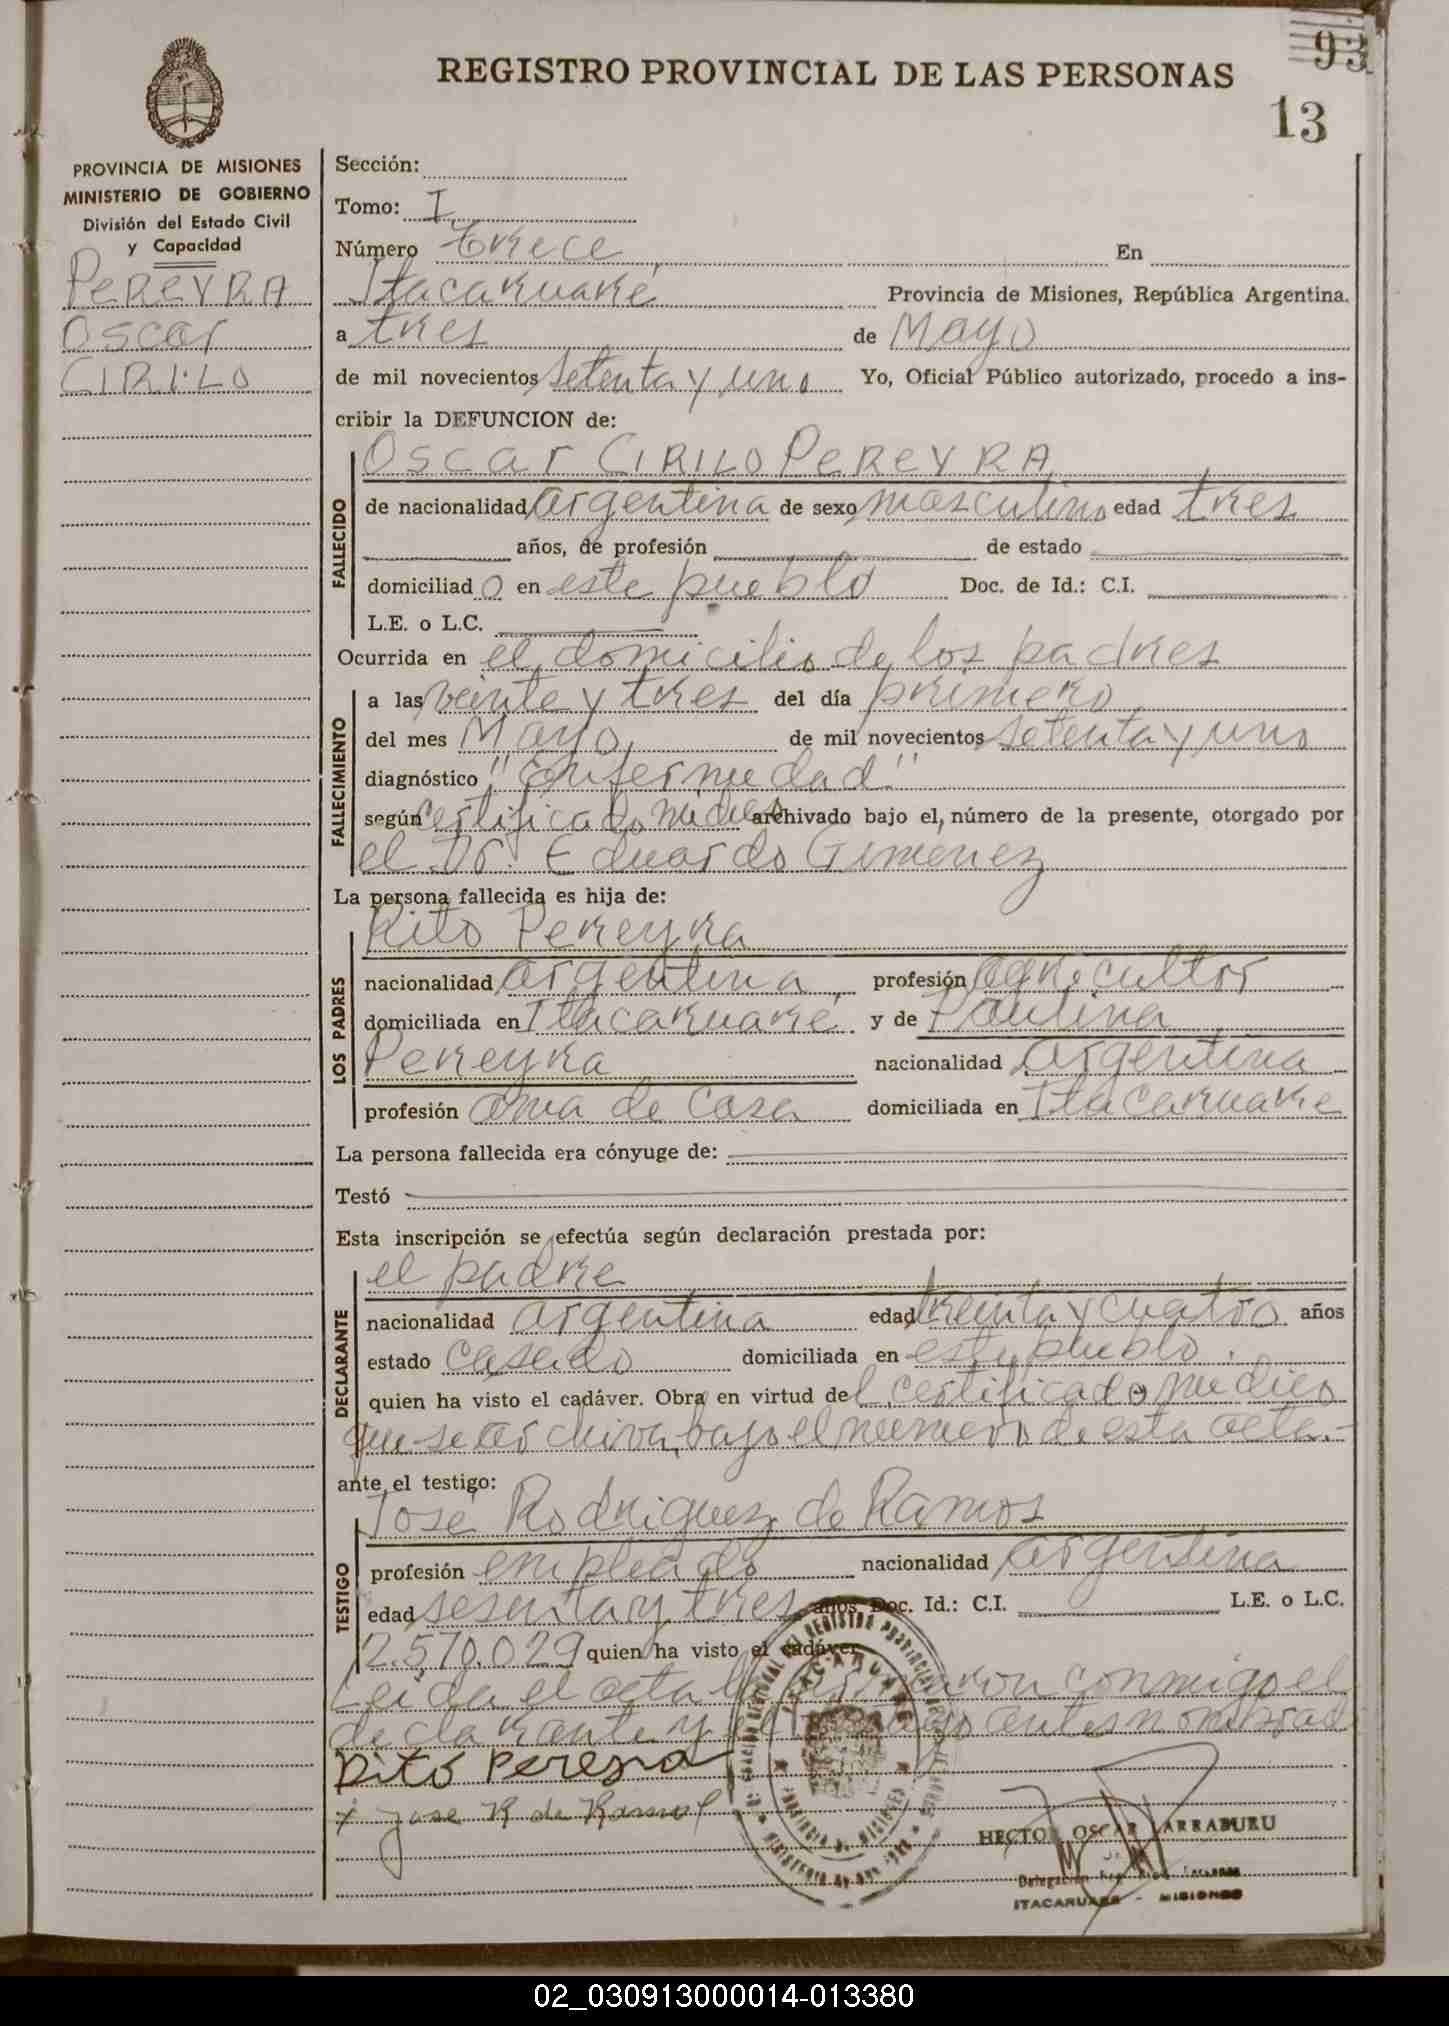 93
REGISTRO PROVINCIAL DE LAS PERSONAS
13
PROVINCIA DE MISIONES
MINISTERIO DE GOBIERNO
División del Estado Civil
y Capacidad
PEREYRA
Oscar
CIRILO
Sección:
Tomo: I
Número trece, En
Itacaruaré Provincia de Misiones, República Argentina.
a tres de Mayo
de mil novecientos setenta y uno Yo, Oficial Público autorizado, procedo a ins-
cribir la DEFUNCION de:
Oscar CIRILO PEREYRA
FALLECIDO
de nacionalidad argentina de sexo masculino edad tres
años, de profesión de estado
domiciliad o en este pueblo Doc. de Id.: C.I.
L.E. o L.C.
Ocurrida en el domicilio de los padres
FALLECIMIENTO
a las veinte y tres del día primero
del mes Mayo, de mil novecientos setenta y uno
diagnóstico "Enfermedad"
según certificado médico archivado bajo el, número de la presente, otorgado por
el Dr. Eduardo Gimenez
La persona fallecida es hija de:
LOS PADRES
Rito Pereyra
nacionalidad argentina profesión agricultor
domiciliada en Itacaruaré y de Paulina
Pereyra nacionalidad argentina
profesión ama de casa domiciliada en Itacaruare
La persona fallecida era cónyuge de:
Testó
Esta inscripción se efectúa según declaración prestada por:
DECLARANTE
el padre
nacionalidad argentina edad treinta y cuatro años
estado casado domiciliada en este pueblo.
quien ha visto el cadáver. Obra en virtud del certificado medico
que se archiva bajo el numero de esta acta.-
ante el testigo:
TESTIGO
José Rodriguez de Ramos
profesión empleado nacionalidad argentina
edad sesenta y tres años Doc. Id.: C.I. L.E. o L.C.
2.570.029 quien ha visto el cadáver
Leída el acta la conmigo el
declarante y el testigo antes nombrad
Rito Pereyra
José R de Ramos
HECTOR OSCAR LARRABURU
Delegación
ITACARUARE - MISIONES
02_030913000014-013380